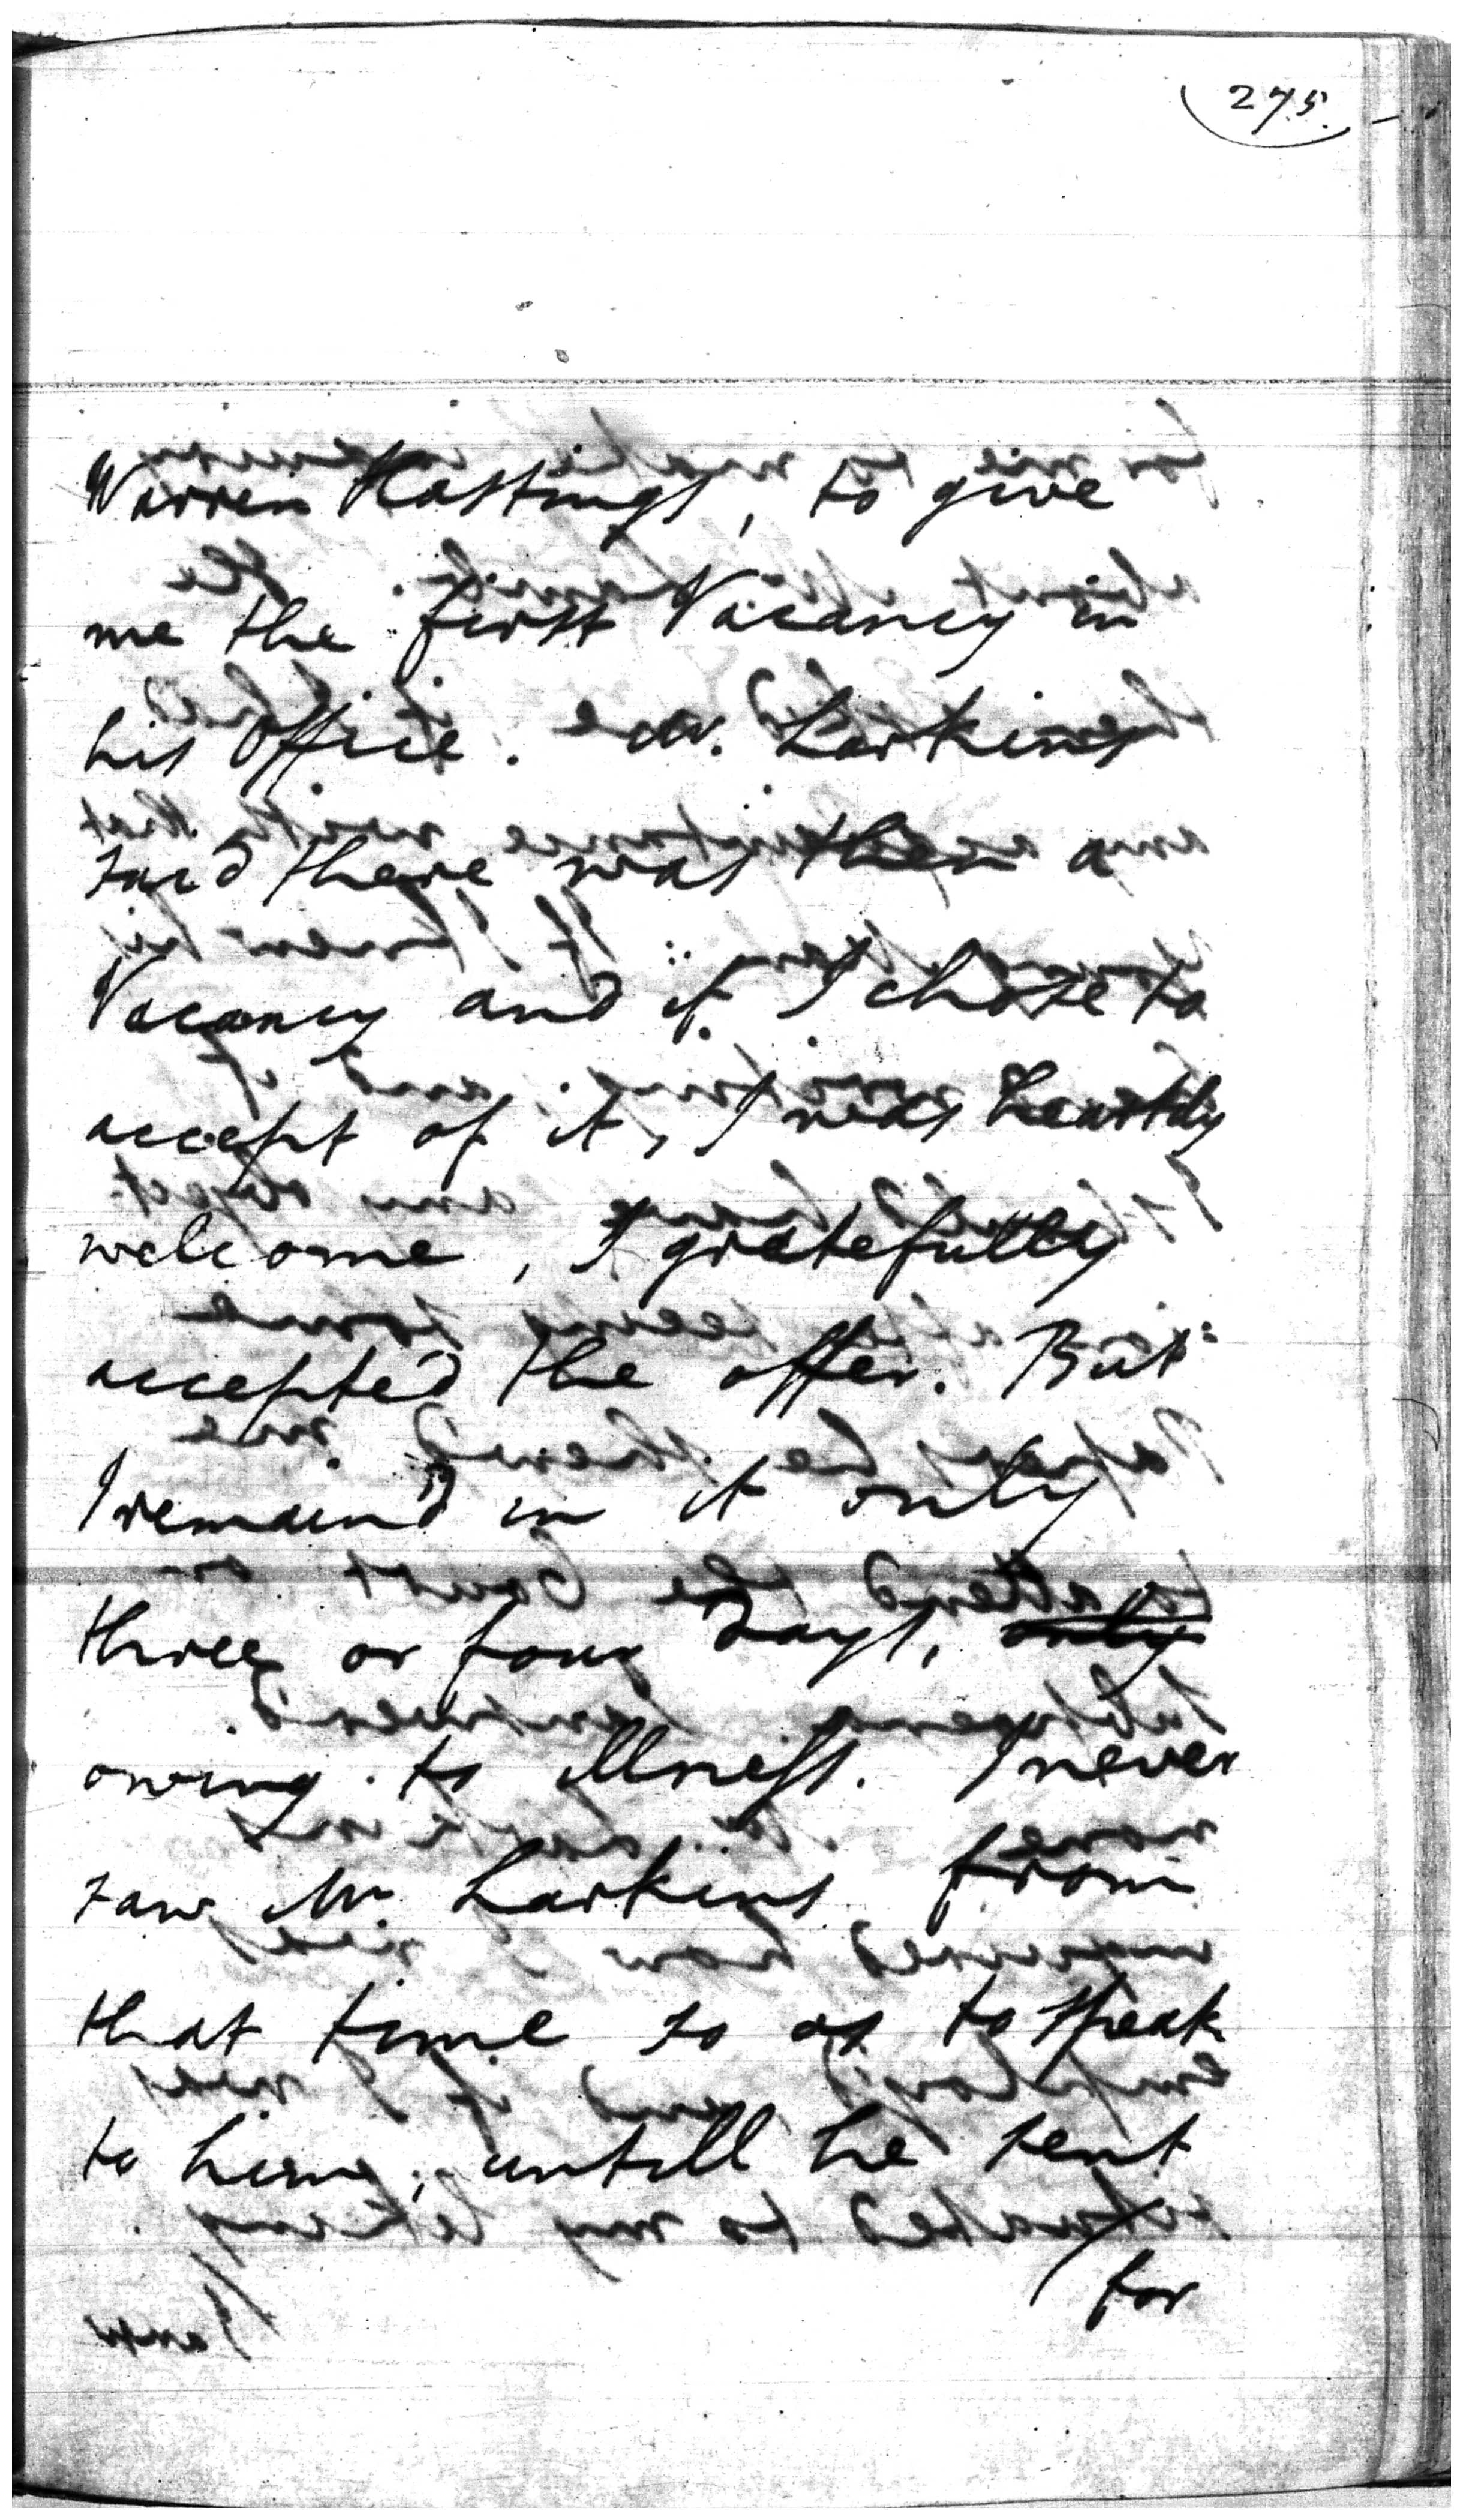 275.
Warren Hastings, to give
me the first Vacancy in
his Office. Mr. Larkins
said there was then a
Vacancy and if I chose to
accept of it, I was heartily
welcome, I gratefully
accepted the offer. But
I remain'd in it only
three or four Days, only
owing to illness. I never
saw Mr Larkins from
that time so as to speak
to him, untill he sent
/ for